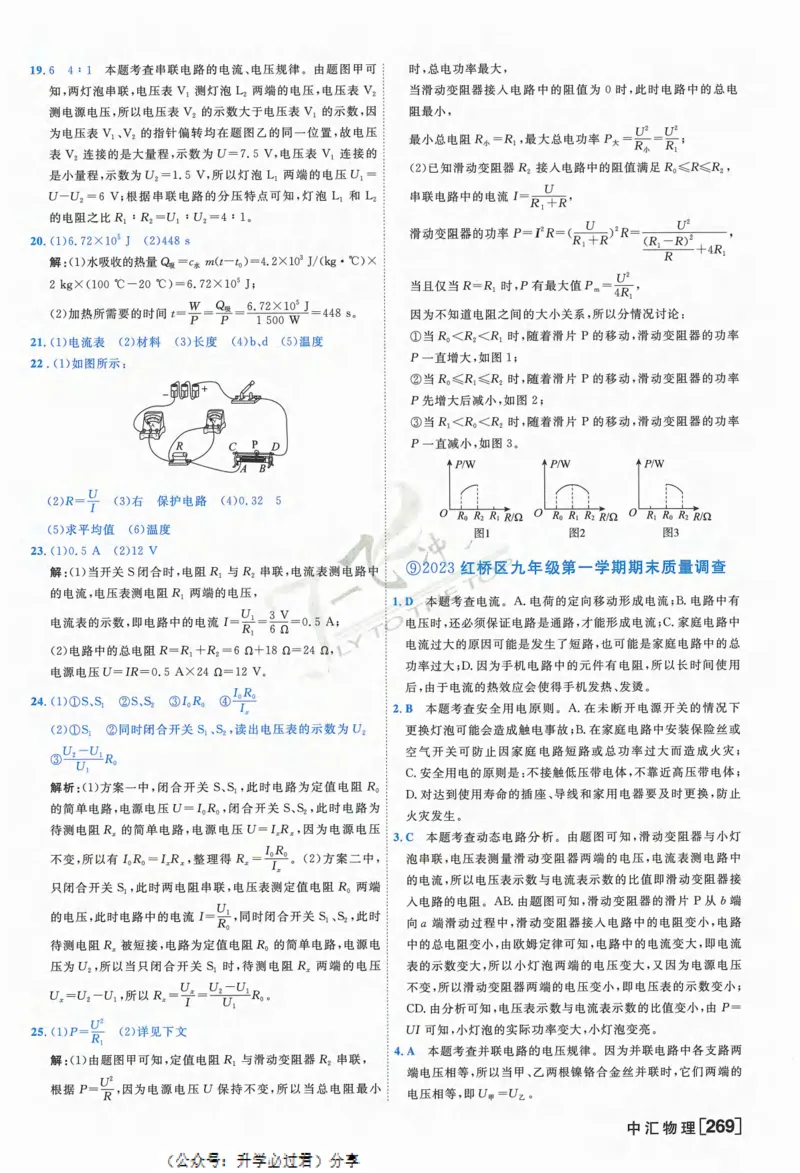 19.6 4∶1 本题考查串联电路的电流、电压规律。由题图甲可
知,两灯泡串联,电压表 V₁ 测灯泡 L₂ 两端的电压,电压表 V₂
测电源电压,所以电压表 V₂ 的示数大于电压表 V₁ 的示数,因
为电压表 V₁、V₂ 的指针偏转均在题图乙的同一位置,故电压
表 V₂ 连接的是大量程,示数为 U=7.5 V,电压表 V₁ 连接的
是小量程,示数为 U₂=1.5 V,所以灯泡 L₁ 两端的电压 U₁=
U−U₂=6 V;根据串联电路的分压特点可知,灯泡 L₁ 和 L₂
的电阻之比 R₁∶R₂=U₁∶U₂=4∶1。
20.(1)6.72×10⁵ J (2)448 s
解:(1)水吸收的热量 Q吸=c水 m(t−t₀)=4.2×10³ J/(kg·℃)×
2 kg×(100 ℃−20 ℃)=6.72×10⁵ J;
(2)加热所需要的时间 t=W/P=Q吸/P=6.72×10⁵ J/1 500 W=448 s。
21.(1)电流表 (2)材料 (3)长度 (4)b、d (5)温度
22.(1)如图所示:
− +
R C P D
A B
(2)R=U/I (3)右 保护电路 (4)0.32 5
(5)求平均值 (6)温度
23.(1)0.5 A (2)12 V
解:(1)当开关 S 闭合时,电阻 R₁ 与 R₂ 串联,电流表测电路中
的电流,电压表测电阻 R₁ 两端的电压,
电流表的示数,即电路中的电流 I=U₁/R₁=3 V/6 Ω=0.5 A;
(2)电路中的总电阻 R=R₁+R₂=6 Ω+18 Ω=24 Ω,
电源电压 U=IR=0.5 A×24 Ω=12 V。
24.(1)①S、S₁ ②S、S₂ ③I₀R₀ ④I₀R₀/Iₓ
(2)①S₁ ②同时闭合开关 S₁、S₂,读出电压表的示数为 U₂
③(U₂−U₁)/U₁ R₀
解析:(1)方案一中,闭合开关 S、S₁,此时电路为定值电阻 R₀
的简单电路,电源电压 U=I₀R₀,闭合开关 S、S₂,此时电路为
待测电阻 Rₓ 的简单电路,电源电压 U=IₓRₓ,因为电源电压
不变,所以有 I₀R₀=IₓRₓ,整理得 Rₓ=I₀R₀/Iₓ。(2)方案二中,
只闭合开关 S₁,此时两电阻串联,电压表测定值电阻 R₀ 两端
的电压,此时电路中的电流 I=U₁/R₀,同时闭合开关 S₁、S₂,此时
待测电阻 Rₓ 被短接,电路为定值电阻 R₀ 的简单电路,电源电
压为 U₂,所以当只闭合开关 S₁ 时,待测电阻 Rₓ 两端的电压
Uₓ=U₂−U₁,所以 Rₓ=Uₓ/I=(U₂−U₁)/U₁ R₀。
25.(1)P=U²/R₁ (2)详见下文
解:(1)由题图甲可知,定值电阻 R₁ 与滑动变阻器 R₂ 串联,
根据 P=U²/R,因为电源电压 U 保持不变,所以当总电阻最小
时,总电功率最大,
当滑动变阻器接入电路中的阻值为 0 时,此时电路中的总电
阻最小,
最小总电阻 R小=R₁,最大总电功率 P大=U²/R小=U²/R₁;
(2)已知滑动变阻器 R₂ 接入电路中的阻值满足 R₀≤R≤R₂,
串联电路中的电流 I=U/(R₁+R),
滑动变阻器的功率 P=I²R=(U/(R₁+R))²R=U²/((R₁−R)²/R+4R₁),
当且仅当 R=R₁ 时,P 有最大值 Pₘ=U²/4R₁,
因为不知道电阻之间的大小关系,所以分情况讨论:
①当 R₀<R₂<R₁ 时,随着滑片 P 的移动,滑动变阻器的功率
P 一直增大,如图 1;
②当 R₀≤R₁≤R₂ 时,随着滑片 P 的移动,滑动变阻器的功率
P 先增大后减小,如图 2;
③当 R₁<R₀<R₂ 时,随着滑片 P 的移动,滑动变阻器的功率
P 一直减小,如图 3。
P/W P/W P/W
O R₀ R₂ R₁ R/Ω O R₀ R₁ R₂ R/Ω O R₁ R₀ R₂ R/Ω
图1 图2 图3
⑨2023 红桥区九年级第一学期期末质量调查
1.D 本题考查电流。A.电荷的定向移动形成电流;B.电路中有
电压时,还必须保证电路是通路,才能形成电流;C.家庭电路中
电流过大的原因可能是发生了短路,也可能是家庭电路中的总
功率过大;D.因为手机电路中的元件有电阻,所以长时间使用
后,由于电流的热效应会使得手机发热、发烫。
2.B 本题考查安全用电原则。A.在未断开电源开关的情况下
更换灯泡可能会造成触电事故;B.在家庭电路中安装保险丝或
空气开关可防止因家庭电路短路或总功率过大而造成火灾;
C.安全用电的原则是:不接触低压带电体,不靠近高压带电体;
D.对达到使用寿命的插座、导线和家用电器要及时更换,防止
火灾发生。
3.C 本题考查动态电路分析。由题图可知,滑动变阻器与小灯
泡串联,电压表测量滑动变阻器两端的电压,电流表测电路中
的电流,所以电压表示数与电流表示数的比值即滑动变阻器接
入电路的电阻。AB.由题图可知,滑动变阻器的滑片 P 从 b 端
向 a 端滑动过程中,滑动变阻器接入电路中的电阻变小,电路
中的总电阻变小,由欧姆定律可知,电路中的电流变大,即电流
表的示数变大,所以小灯泡两端的电压变大,又因为电源电压
不变,所以滑动变阻器两端的电压变小,即电压表的示数变小;
CD.由分析可知,电压表示数与电流表示数的比值变小,由 P=
UI 可知,小灯泡的实际功率变大,小灯泡变亮。
4.A 本题考查并联电路的电压规律。因为并联电路中各支路两
端电压相等,所以当甲、乙两根镍铬合金丝并联时,它们两端的
电压相等,即 U甲=U乙。
中汇物理[269]
(公众号:升学必过君)分享